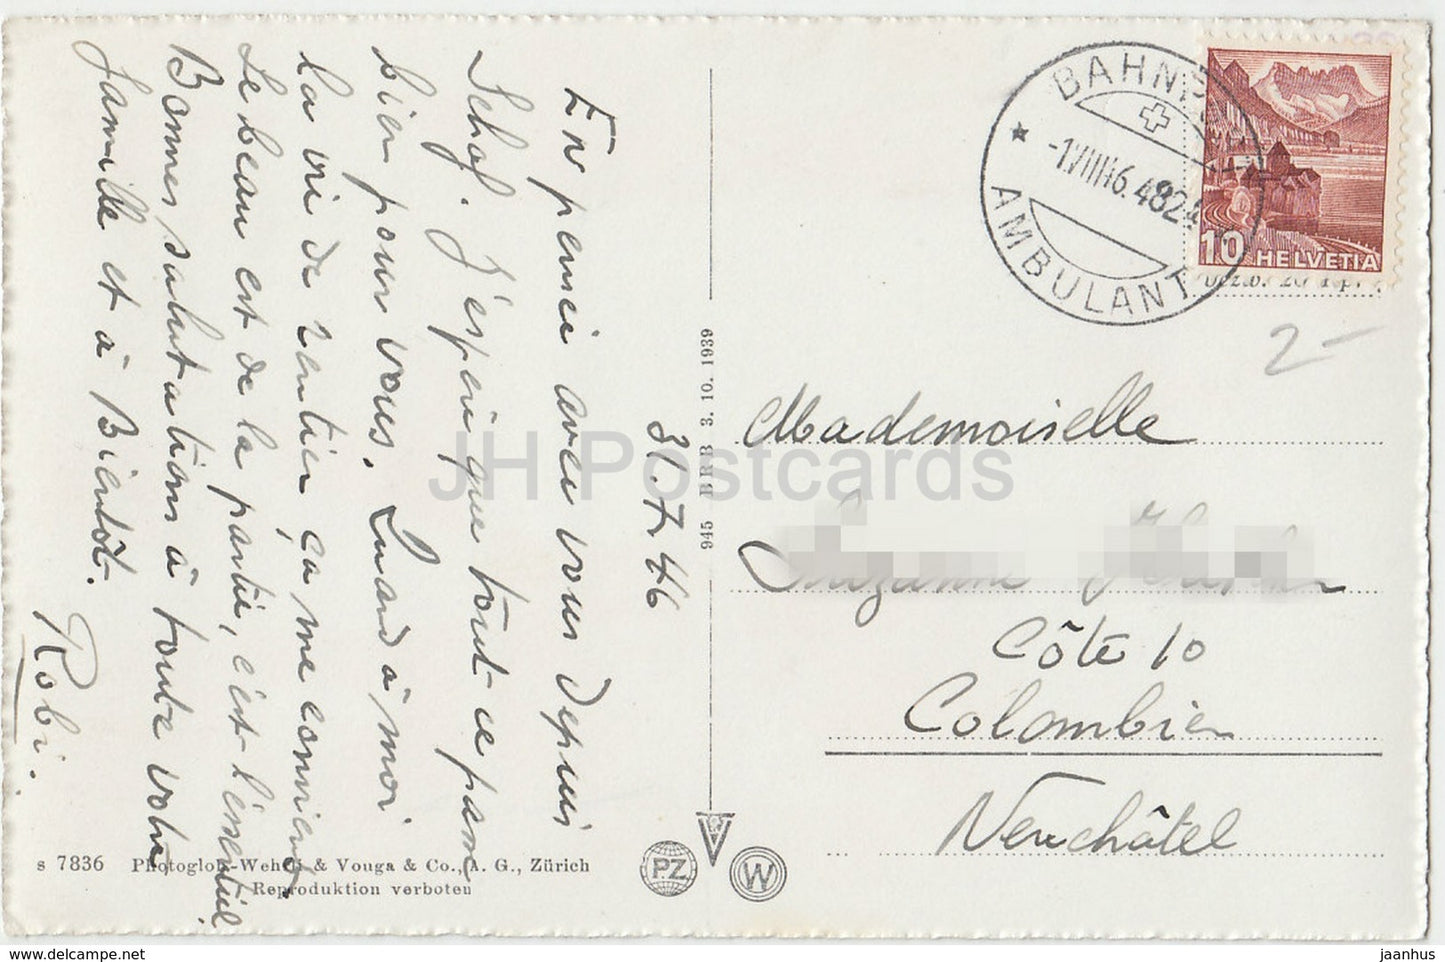 En pensée avec vous depuis
Schaf. J'espère que tout se passe
bien pour vous. Quand à moi
la vie de rentier ça me convient.
Le beau est de la partie, c'est l'essentiel.
Bonnes salutations à toute votre
famille et à Bientôt.
Robi.
31.7.46
BAHNP
AMBULANT
-1.VIII.46.
10 HELVETIA
2-
945 BRB 3. 10. 1939
Mademoiselle
Suzanne
Côte 10
Colombier
Neuchâtel
s 7836 Photoglob-Wehrli & Vouga & Co., A. G., Zürich
Reproduktion verboten
PZ
W
JH Postcards
www.delcampe.net
jaanhus